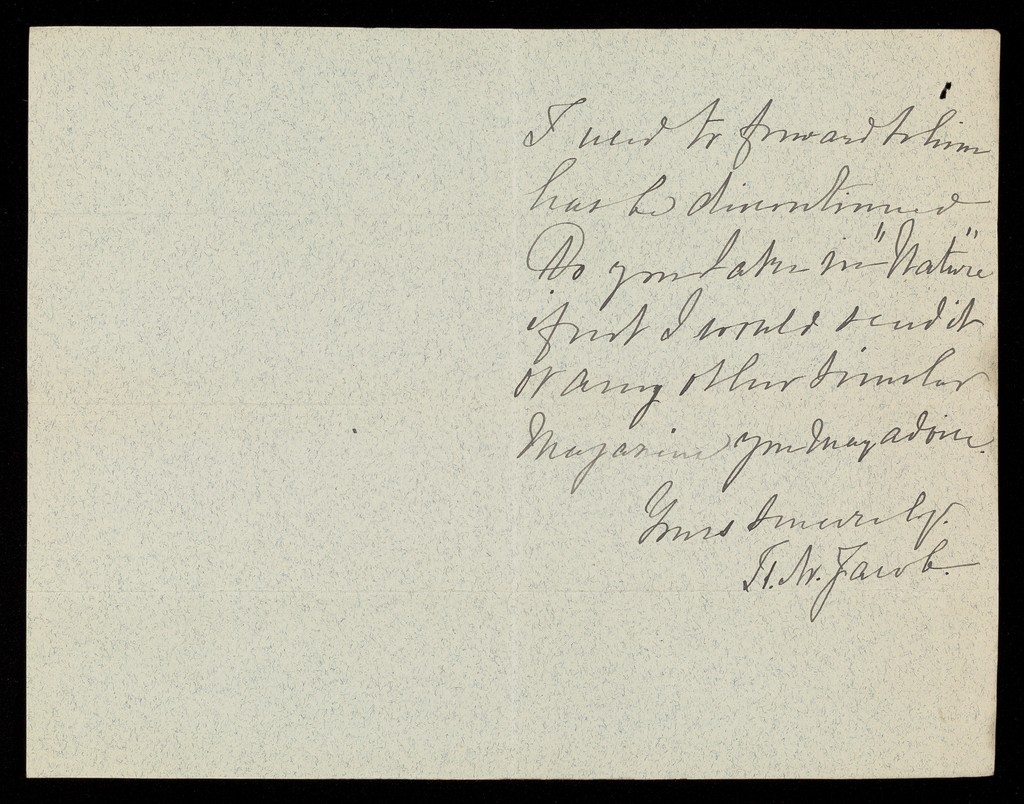 I used to forward to him
has be discontinued
Do you take in "Nature"
if not I would send it
or any other similar
Magazine you may advise.
Yours sincerely.
Jacob.